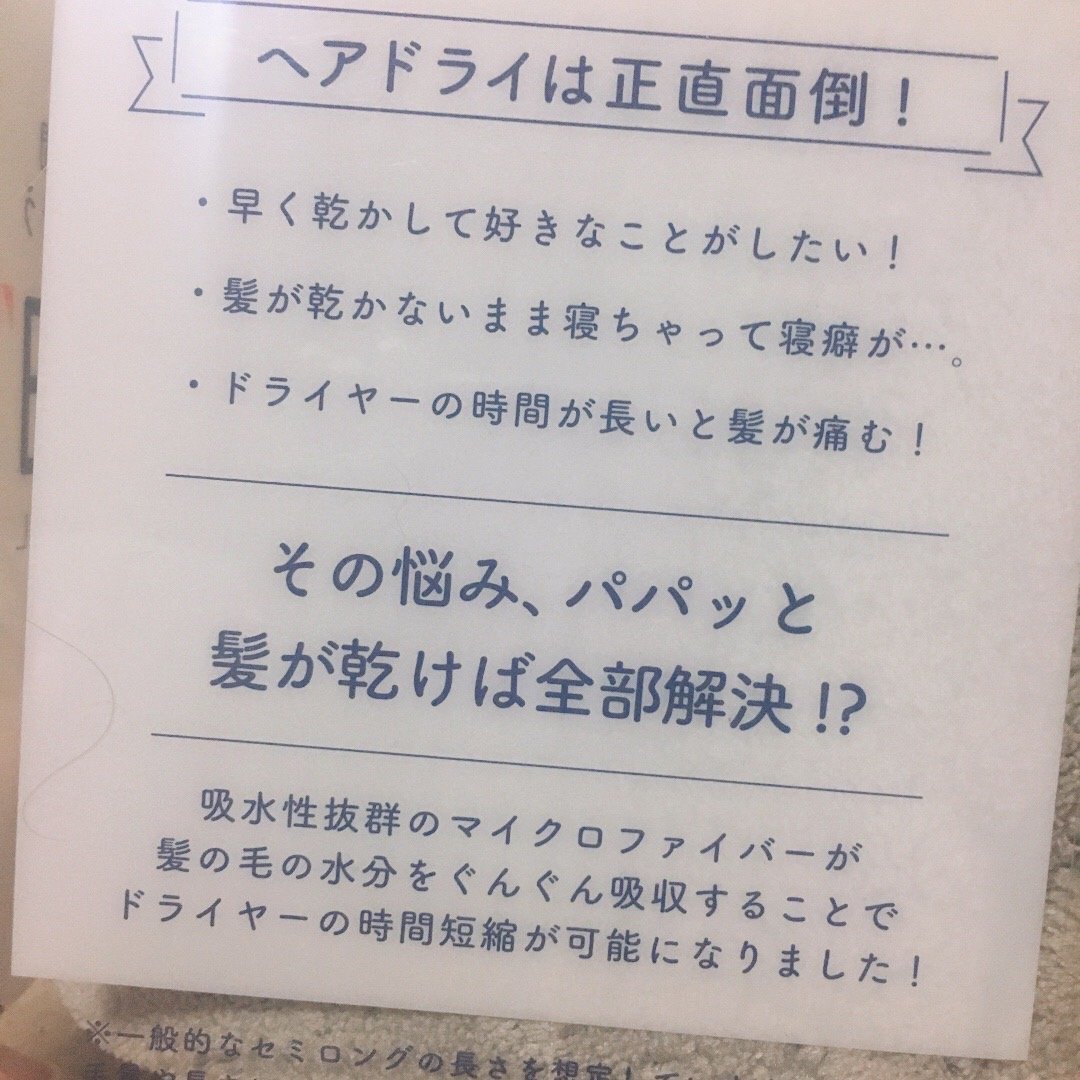 ヘアドライは正直面倒！
・早く乾かして好きなことがしたい！
・髪が乾かないまま寝ちゃって寝癖が…。
・ドライヤーの時間が長いと髪が痛む！
その悩み、パパッと
髪が乾けば全部解決!?
吸水性抜群のマイクロファイバーが
髪の毛の水分をぐんぐん吸収することで
ドライヤーの時間短縮が可能になりました！
※一般的なセミロングの長さを想定してい